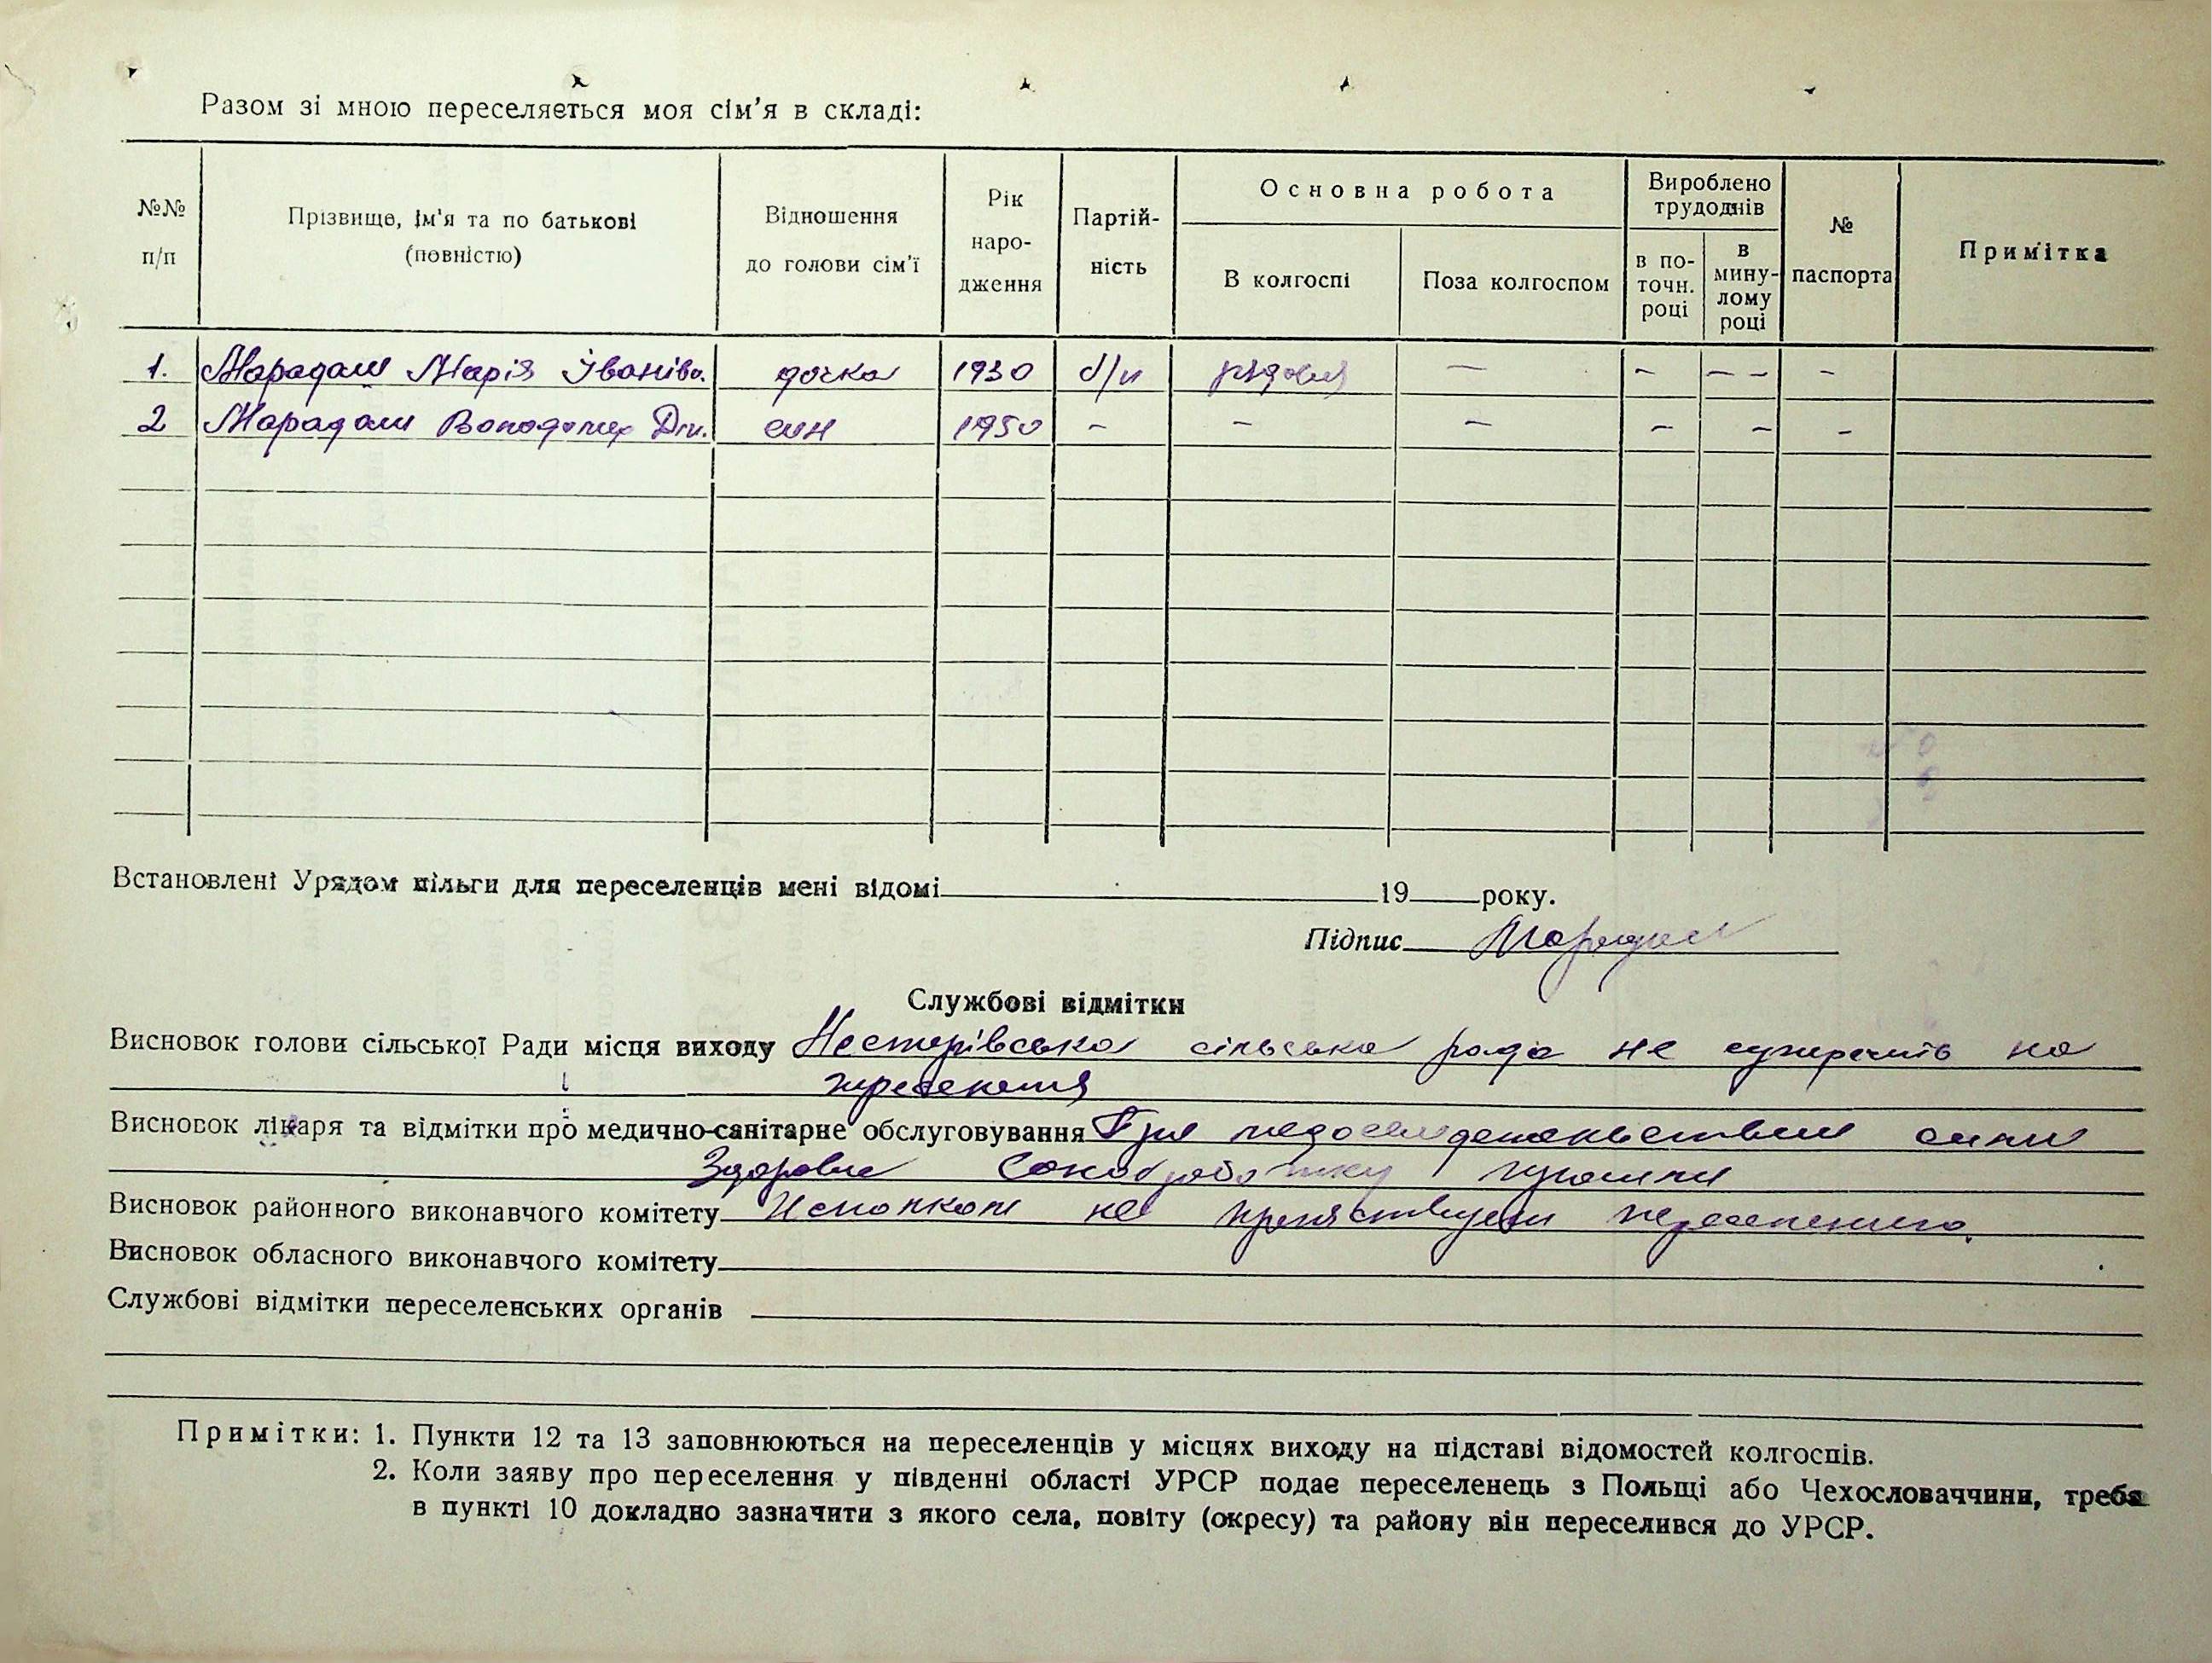 Разом зі мною переселяється моя сім'я в складі:
№№ п/п
Прізвище, ім'я та по батькові (повністю)
Відношення до голови сім'ї
Рік народження
Партійність
Основна робота
В колгоспі
Поза колгоспом
Вироблено трудоднів
в поточн. році
в минулому році
№ паспорта
Примітка
1. Марадаш Марія Іванівн. дочка 1930 б/п рядова — — — — —
2 Марадаш Володимир Дм. син 1950 — — — — — —
Встановлені Урядом пільги для переселенців мені відомі 19 року.
Підпис Марадаш
Службові відмітки
Висновок голови сільської Ради місця виходу Нестерівська сільська рада не суперечить на
переселення
Висновок лікаря та відмітки про медично-санітарне обслуговування При медосвидетельствовании семьи
Здоровые Санобработку прошли
Висновок районного виконавчого комітету Исполком не препятствует переселению.
Висновок обласного виконавчого комітету
Службові відмітки переселенських органів
Примітки: 1. Пункти 12 та 13 заповнюються на переселенців у місцях виходу на підставі відомостей колгоспів.
2. Коли заяву про переселення у південні області УРСР подає переселенець з Польщі або Чехословаччини, треба
в пункті 10 докладно зазначити з якого села, повіту (окресу) та району він переселився до УРСР.